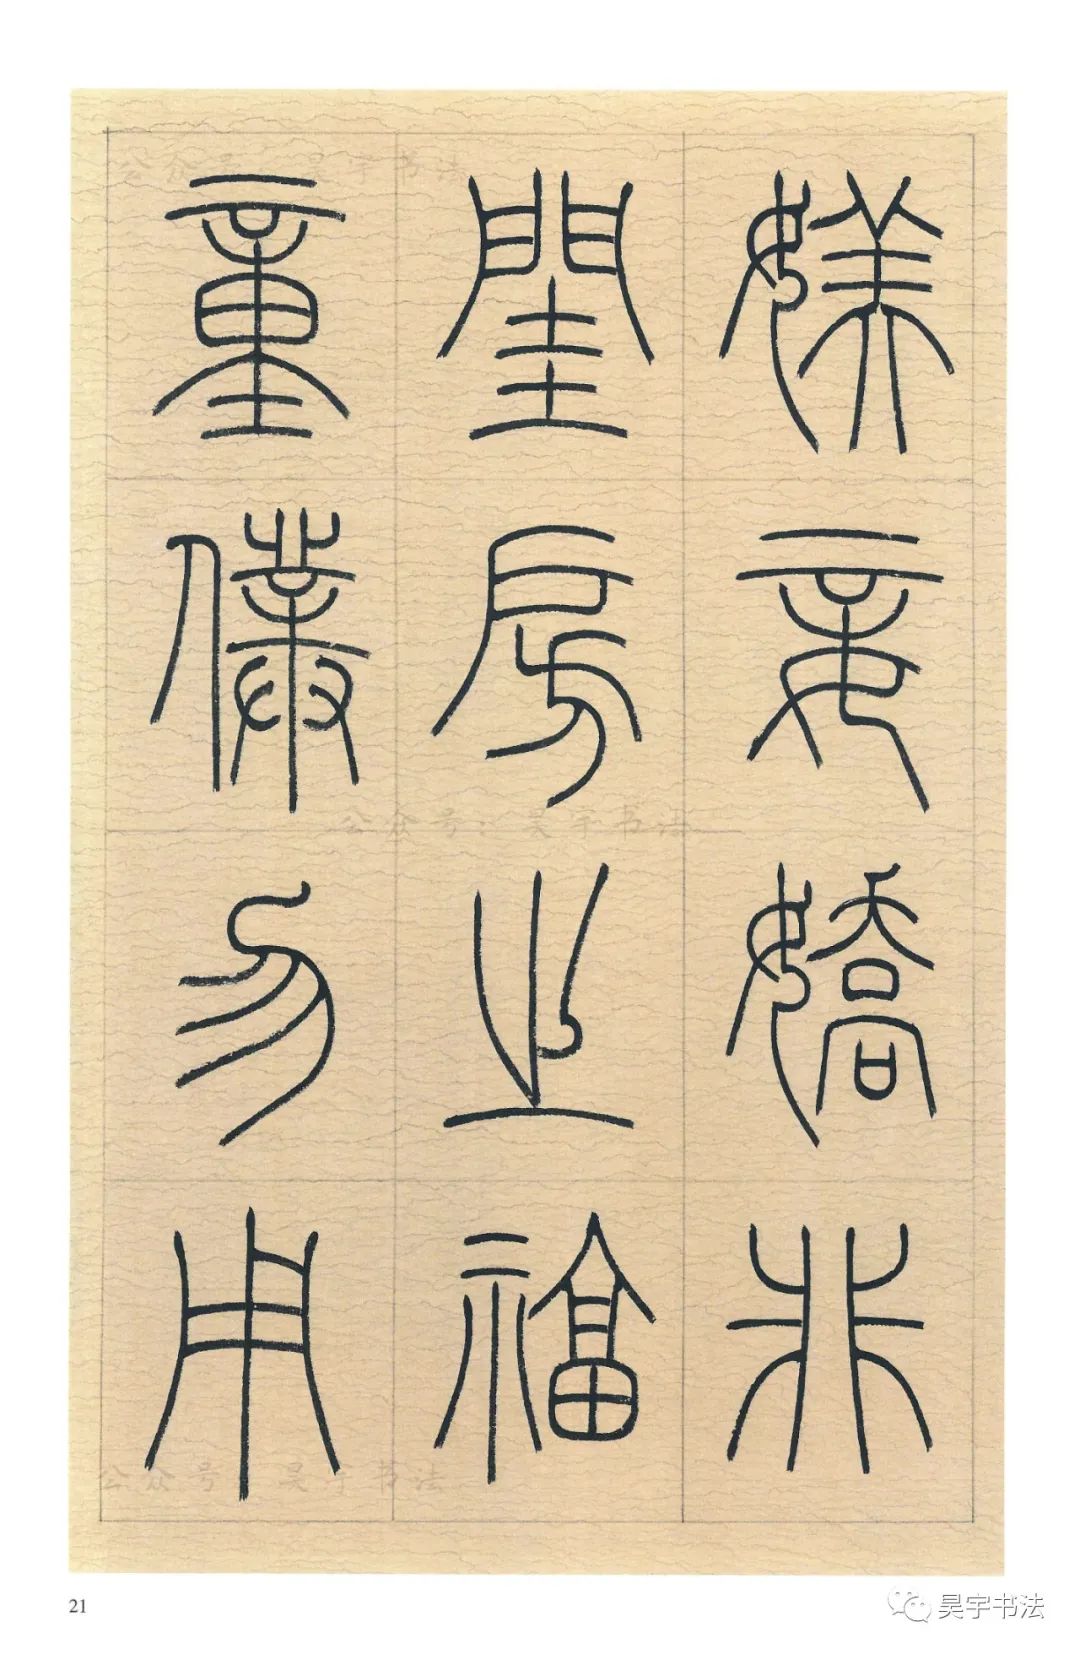 媄妾嬌非
閨房之福
童僕勿用
公众号：昊宇书法
公众号：昊宇书法
公众号：昊宇书法
21
昊宇书法